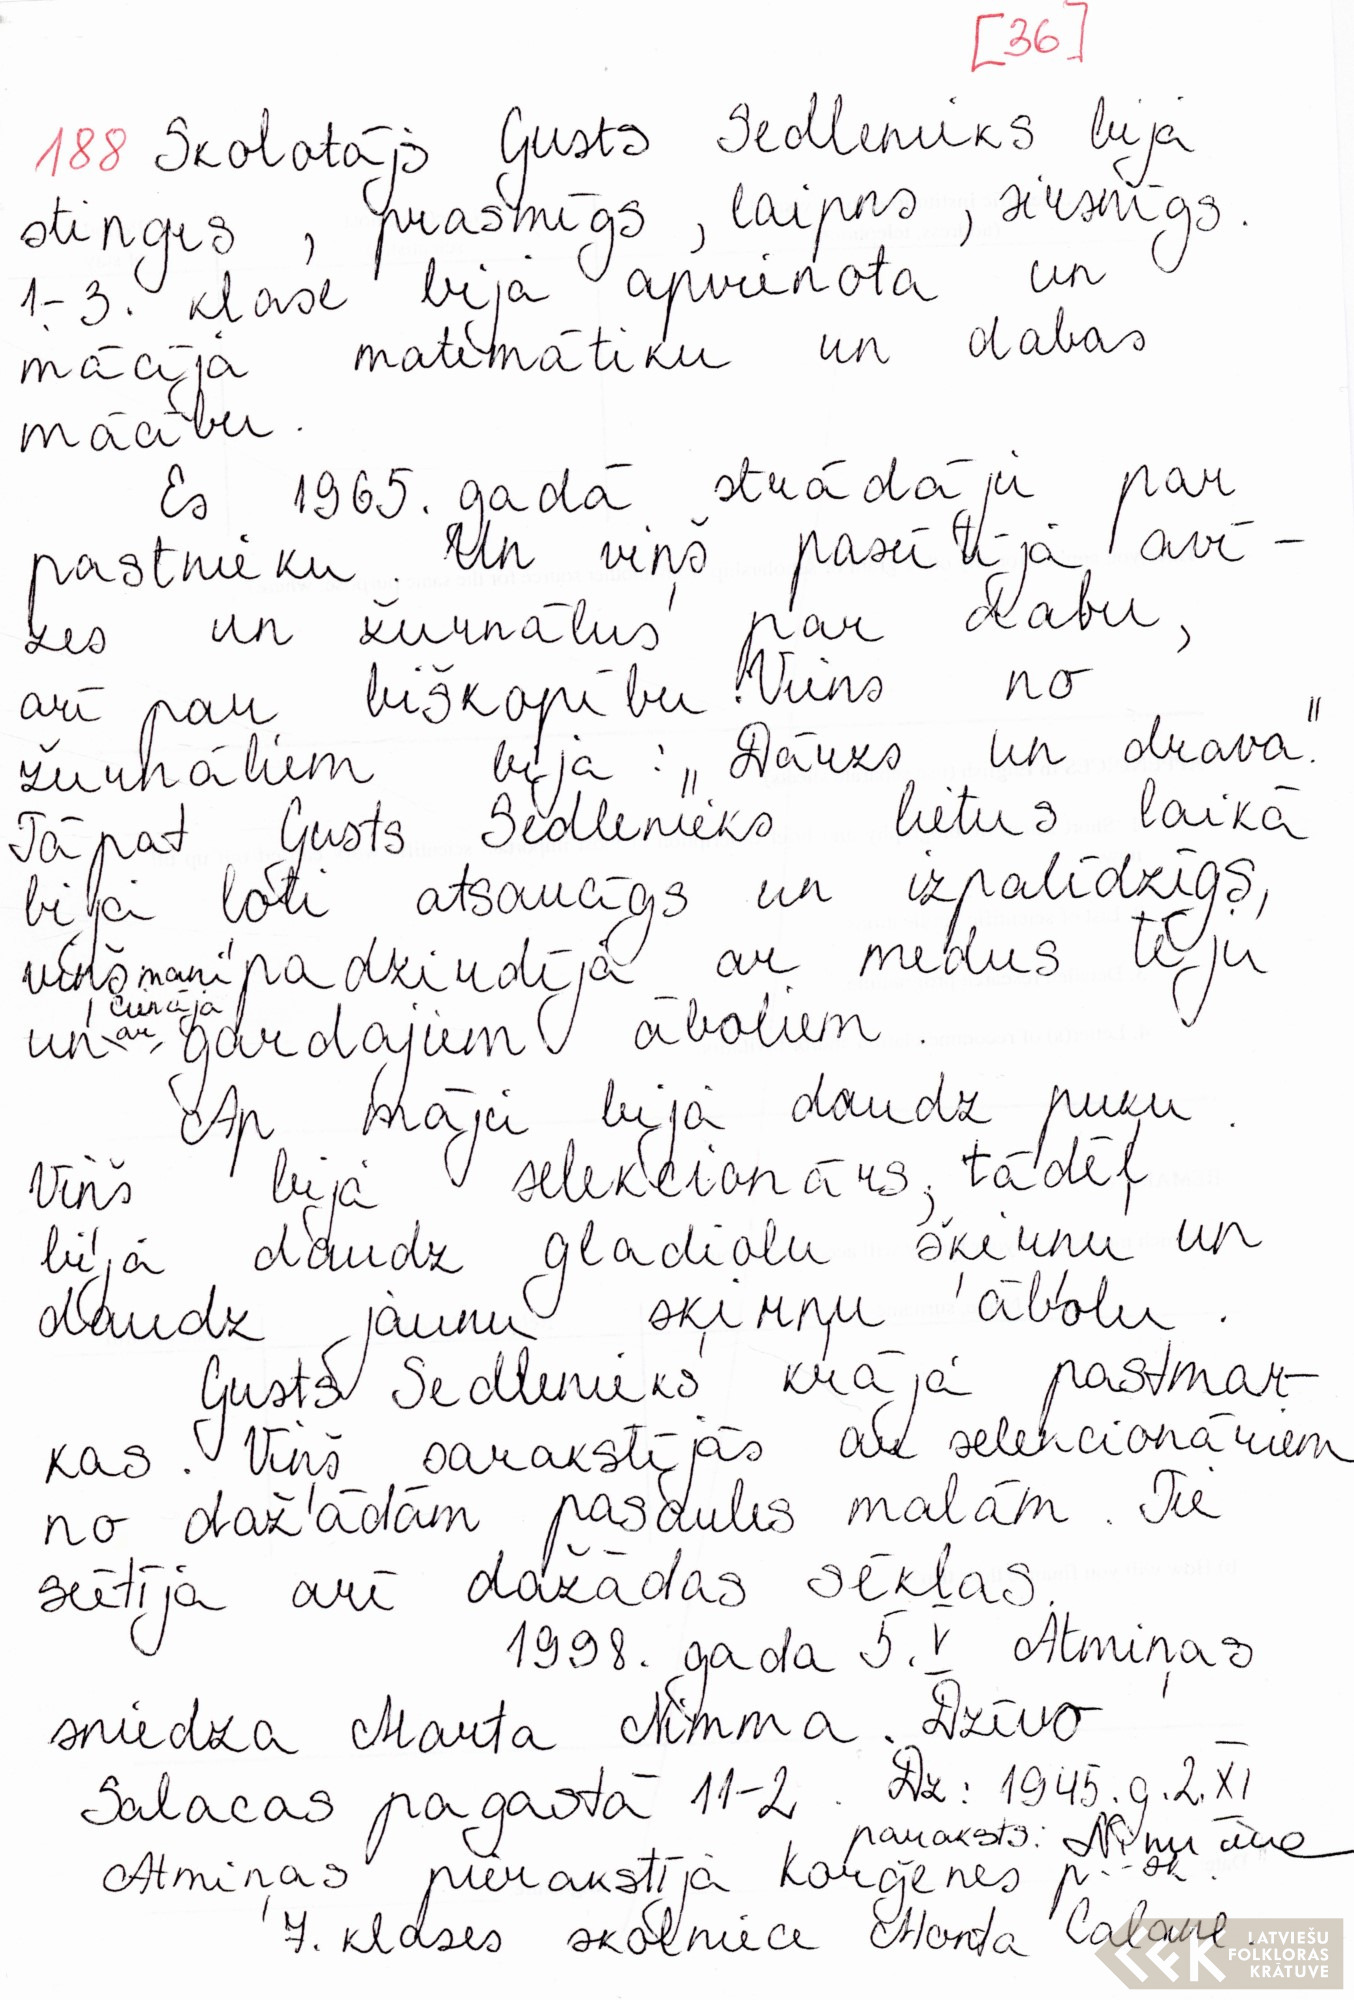 [36]
188 Skolotājs Gusts Sedlenieks bija
stingrs, prasmīgs, laipns, sirsnīgs.
1-3. klase bija apvienota un
mācīja matemātiku un dabas
mācību.
Es 1965. gadā strādāju par
pastnieku Un viņš pasūtīja avī-
zes un žurnālus par dabu,
arī par biškopību. Viens no
žurnāliem bija: „Dārzs un drava."
Tāpat Gusts Sedlenieks lietus laikā
bija ļoti atsaucīgs un izpalīdzīgs,
viņš mani padzirdīja ar medus tēju
un cienāja ar gardajiem āboliem.
Ap māju bija daudz puķu.
Viņš bija selekcionārs, tādēļ
bija daudz gladiolu šķirņu un
daudz jaunu šķirņu ābolu.
Gusts Sedlenieks krāja pastmar-
kas. Viņš sarakstījās ar selekcionāriem
no dažādām pasaules malām. Tie
sūtīja arī dažādas sēklas.
1998. gada 5. V Atmiņas
sniedza Marta Nimma. Dzīvo
Salacas pagastā 11-2. Dz: 1945. g. 2. XI
paraksts:
Atmiņas pierakstīja Korģenes p--sk.
7. klases skolniece Monta
LATVIEŠU
FOLKLORAS
KRĀTUVE